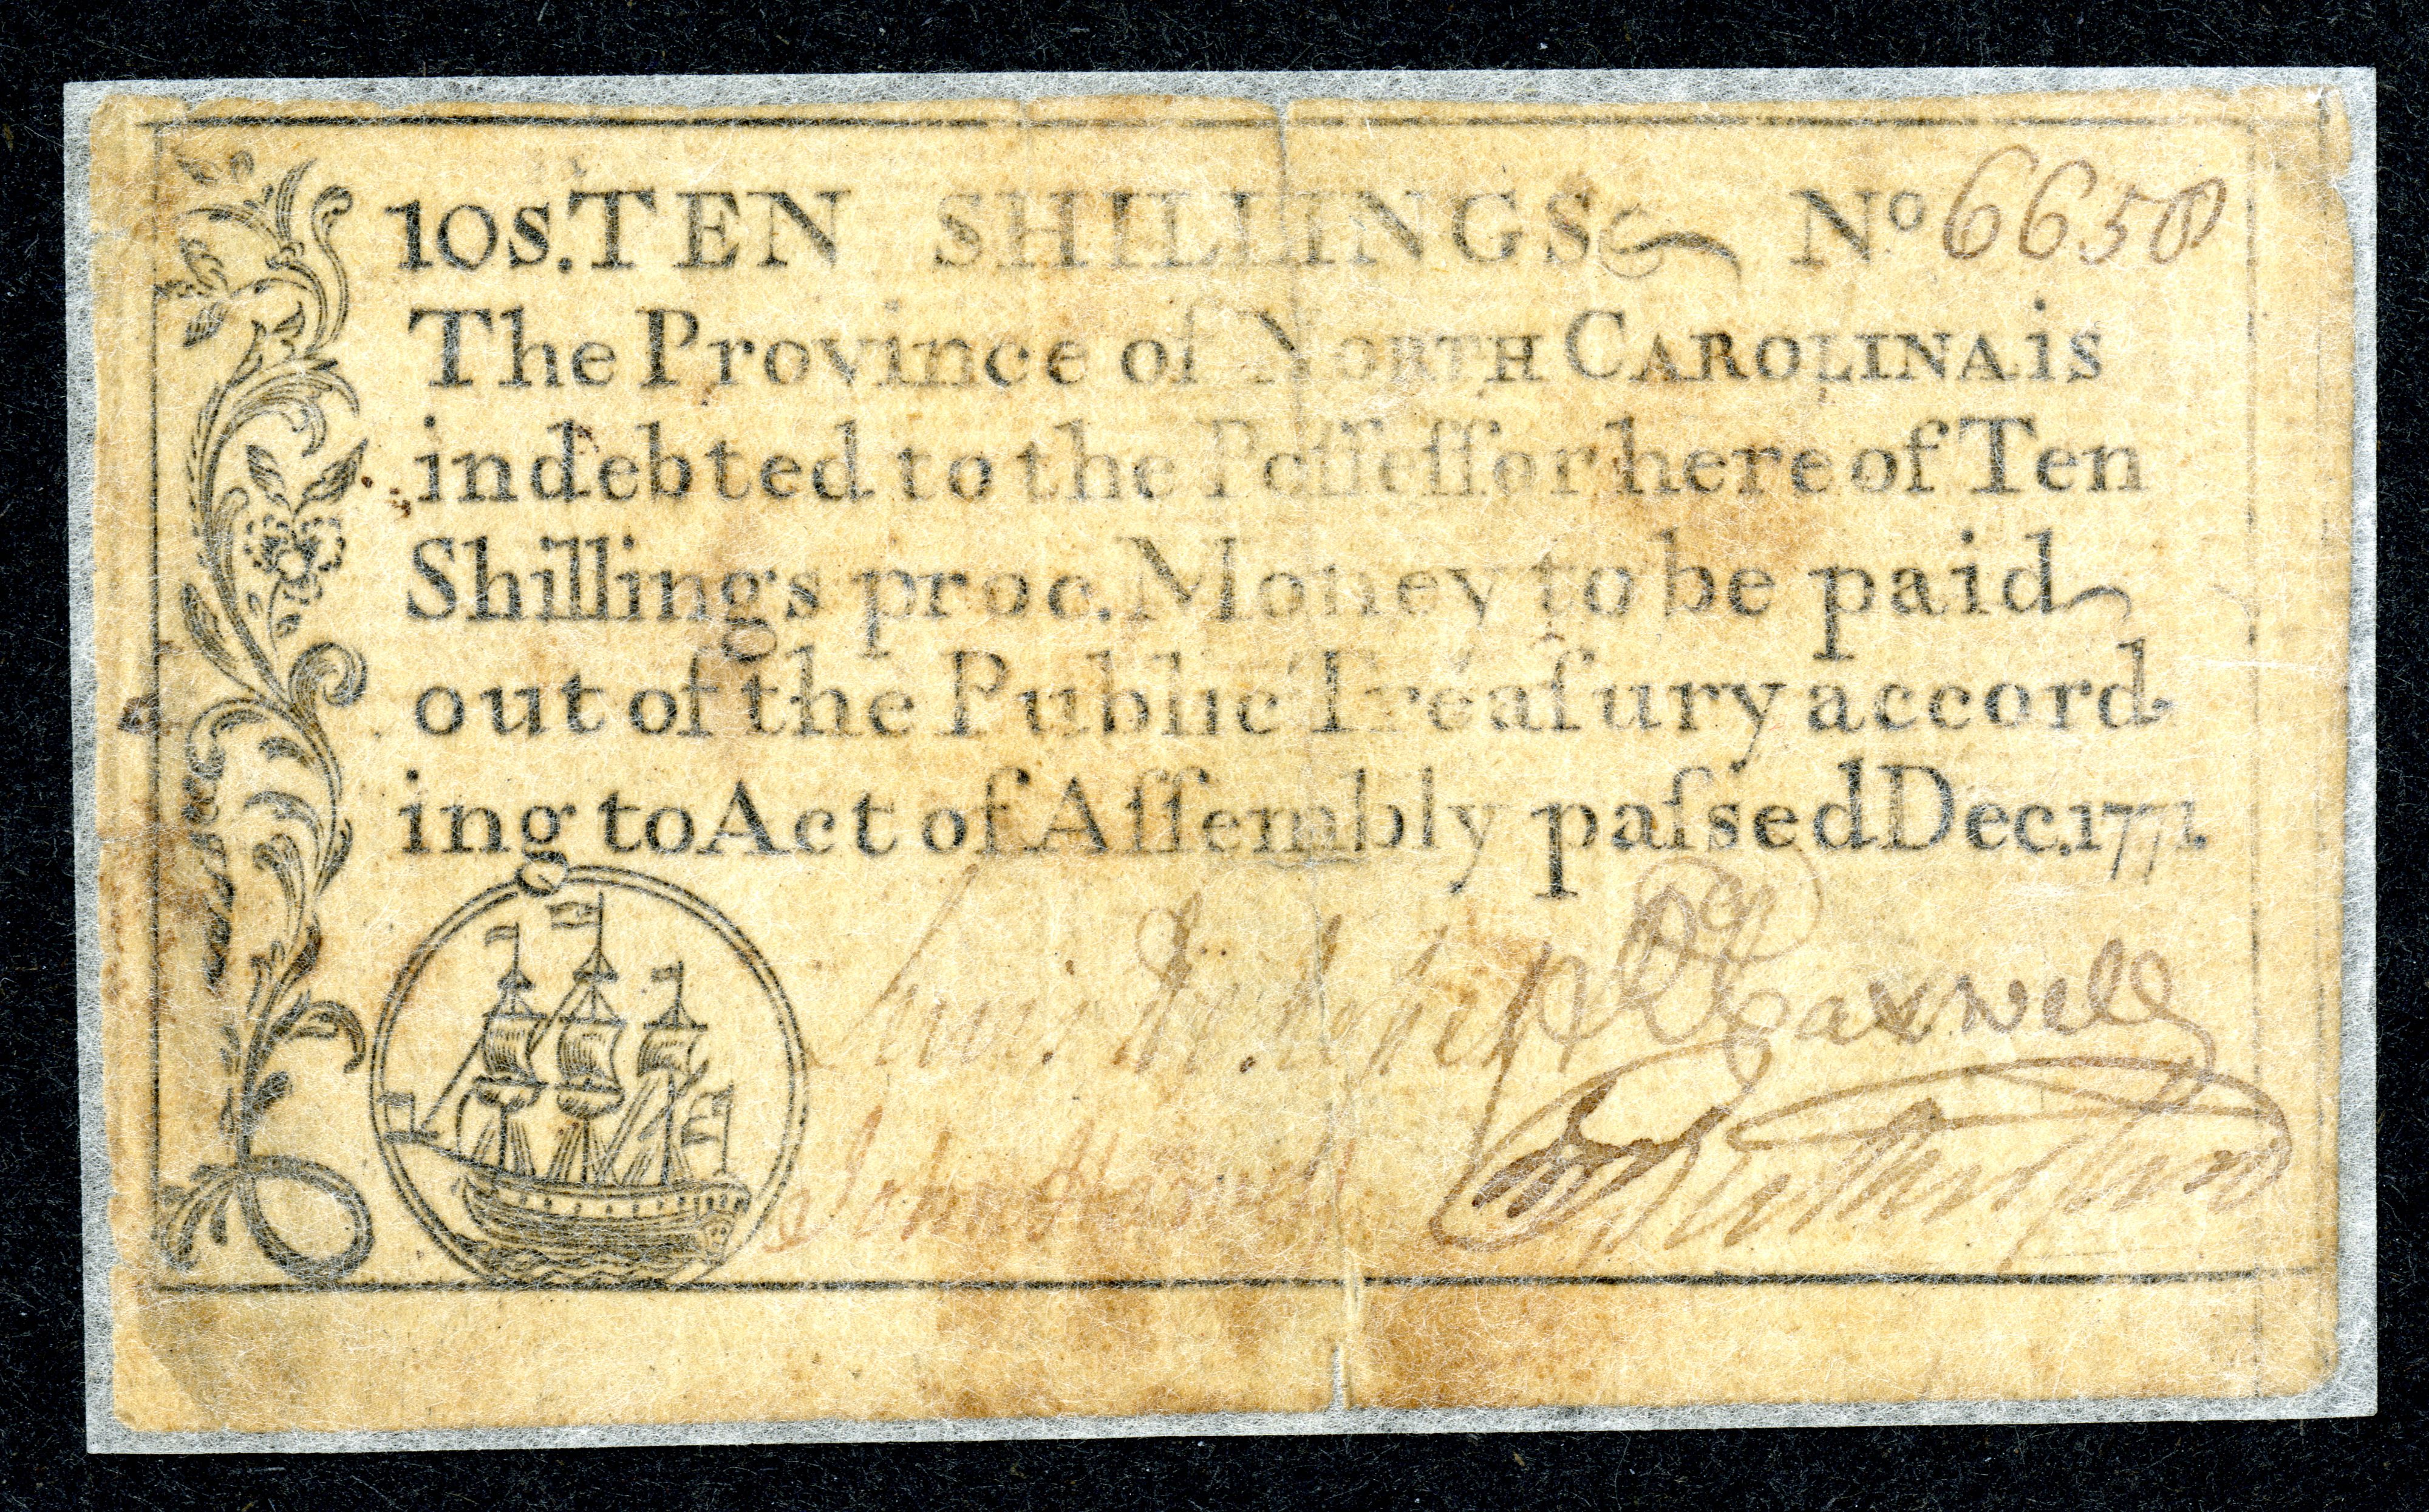 10s. TEN SHILLINGS No 6658
The Province of NORTH CAROLINA is
indebted to the Poſſeſſor here of Ten
Shillings proc. Money to be paid
out of the Public Treaſury accord-
ing to Act of Aſſembly paſsed Dec. 1771.
Lewis H. De Rosset
Rd Caswell
John Harvey